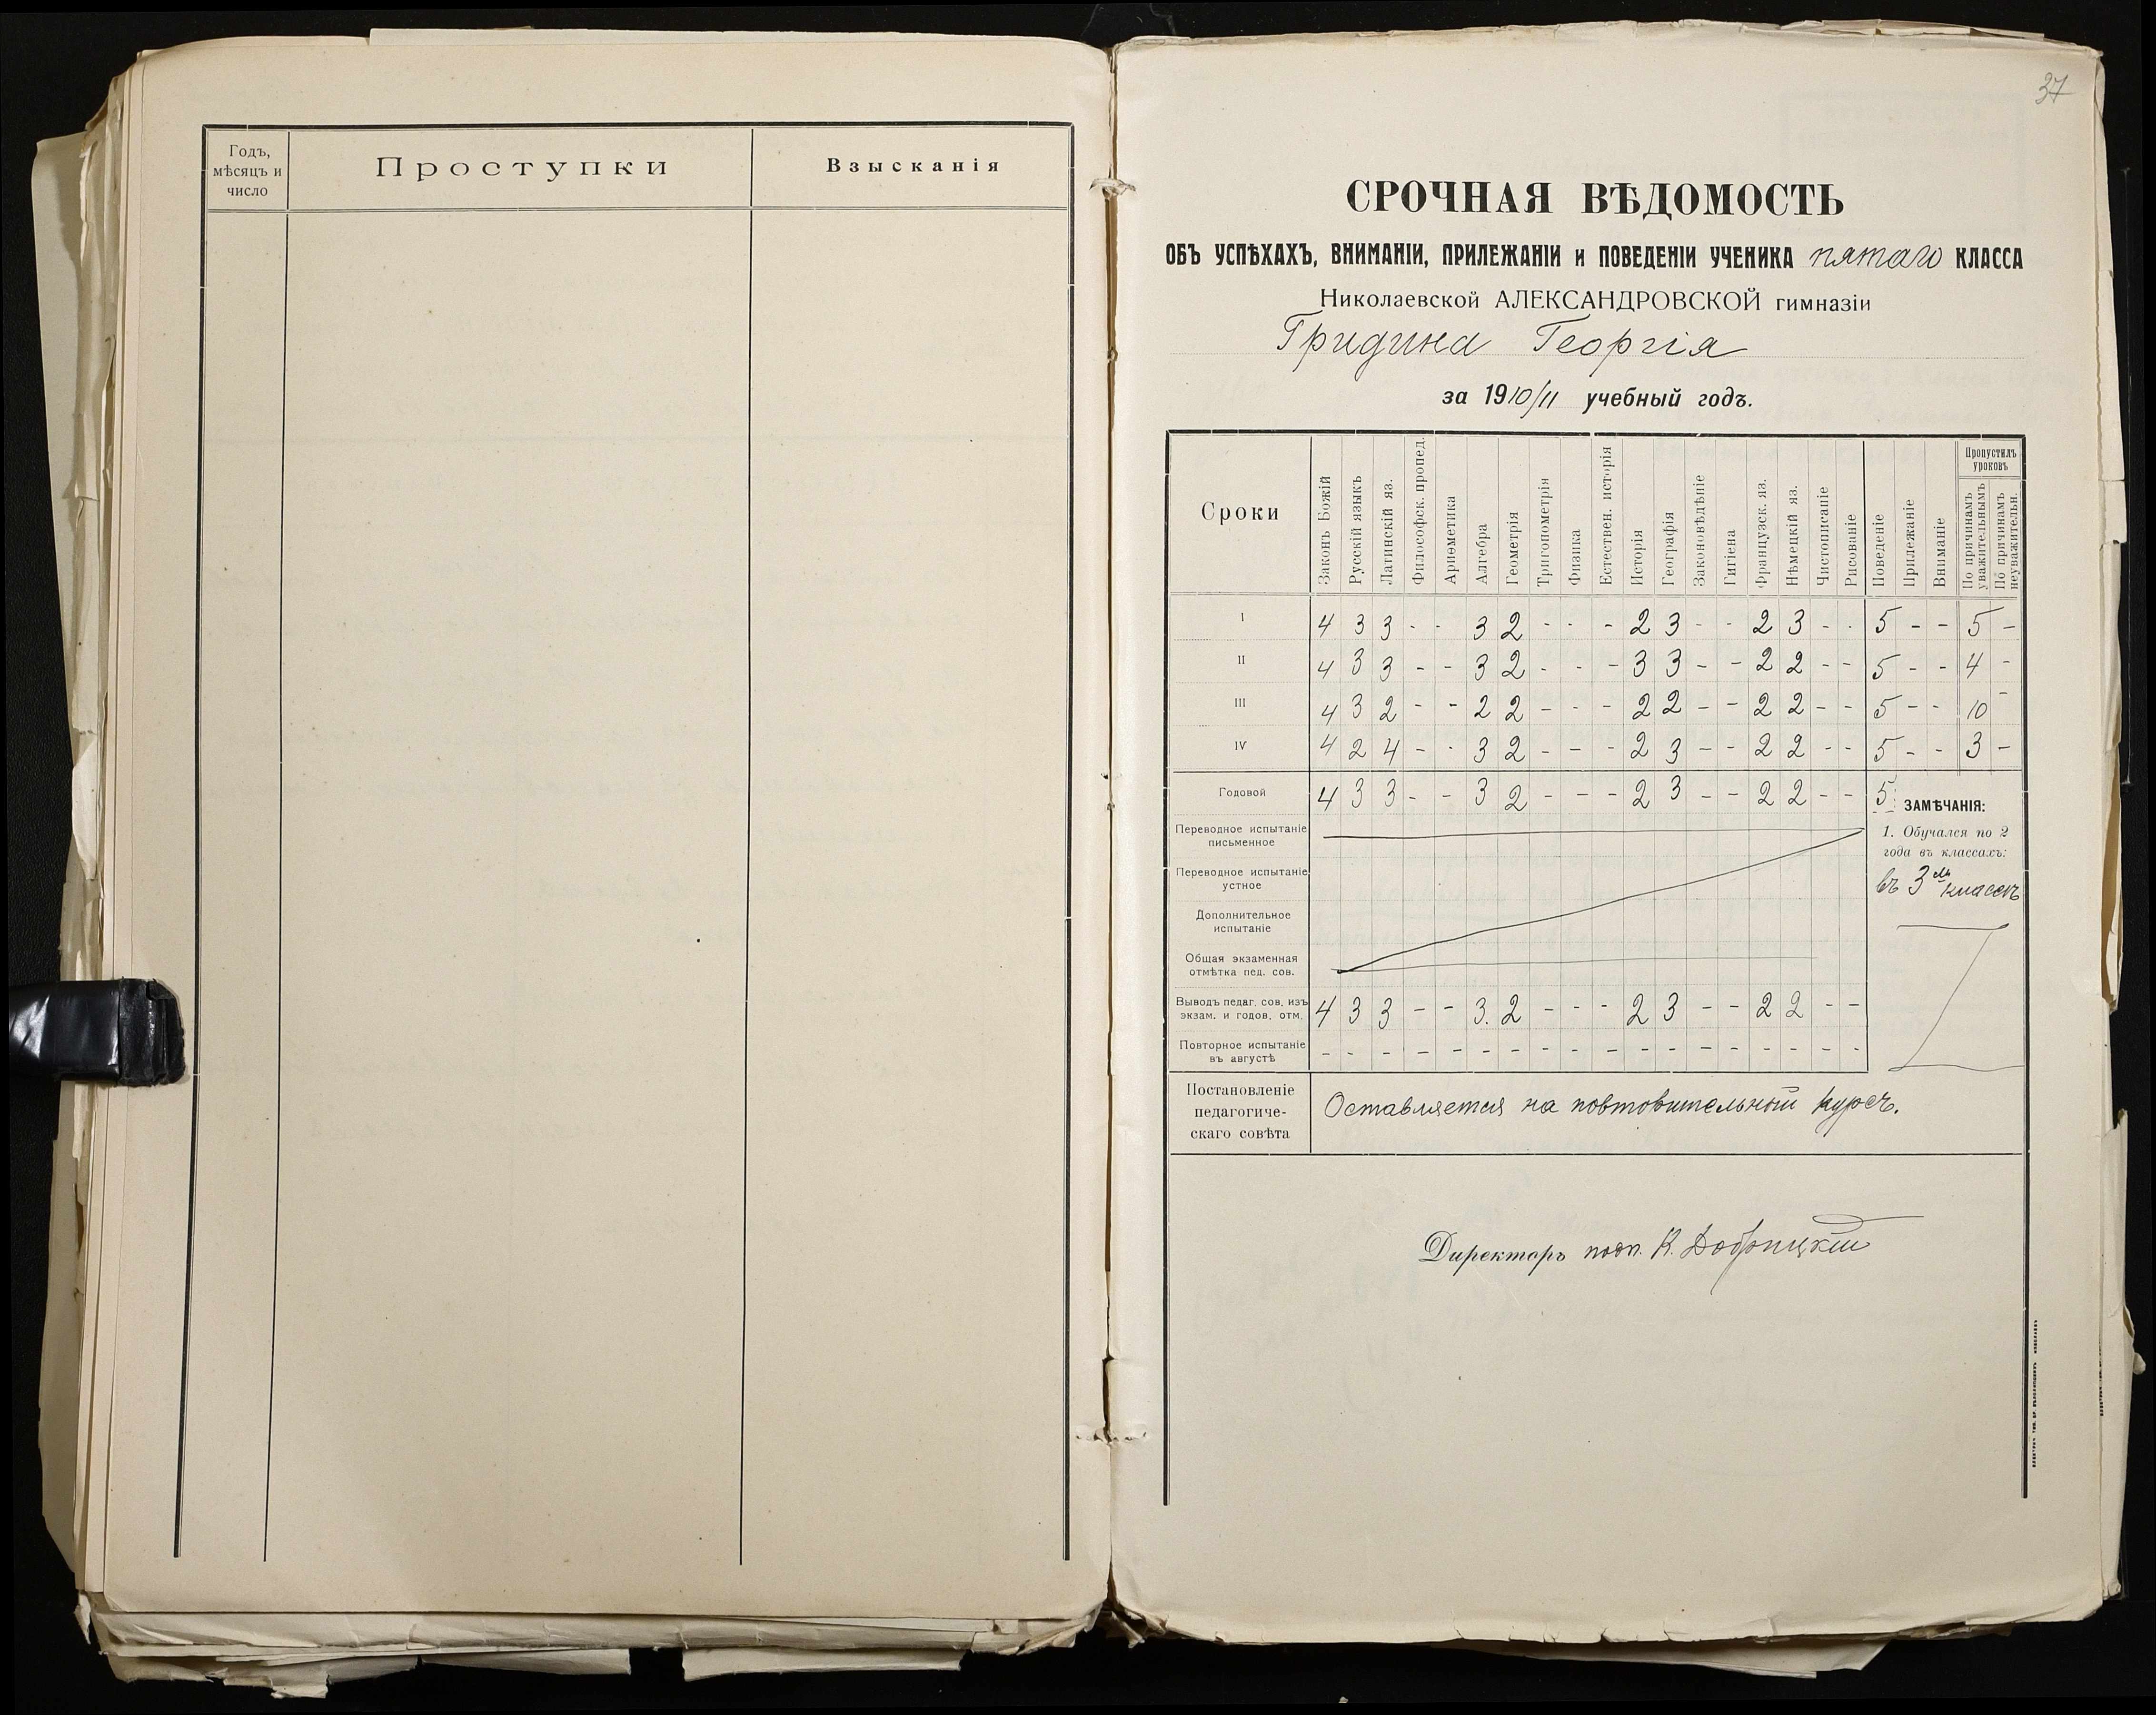 Годъ,
мѣсяцъ и
число
Проступки
Взысканія
37
СРОЧНАЯ ВѢДОМОСТЬ
ОБЪ УСПѢХАХЪ, ВНИМАНІИ, ПРИЛЕЖАНІИ и ПОВЕДЕНІИ УЧЕНИКА пятаго КЛАССА
Николаевской АЛЕКСАНДРОВСКОЙ гимназіи
Гридина Георгія
за 1910/11 учебный годъ.
Сроки
Законъ Божій
Русскій языкъ
Латинскій яз.
Философск. пропед.
Ариѳметика
Алгебра
Геометрія
Тригонометрія
Физика
Естествен. исторія
Исторія
Географія
Законовѣдѣніе
Гигіена
Французск. яз.
Нѣмецкій яз.
Чистописаніе
Рисованіе
Поведеніе
Прилежаніе
Вниманіе
Пропустилъ
уроковъ
По причинамъ
уважительнымъ
По причинамъ
неуважительн.
I 4 3 3 - - 3 2 - - - 2 3 - - 2 3 - - 5 - - 5 -
II 4 3 3 - - 3 2 - - - 3 3 - - 2 2 - - 5 - - 4 -
III 4 3 2 - - 2 2 - - - 2 2 - - 2 2 - - 5 - - 10 -
IV 4 2 4 - - 3 2 - - - 2 3 - - 2 2 - - 5 - - 3 -
Годовой 4 3 3 - - 3 2 - - - 2 3 - - 2 2 - - 5
ЗАМѢЧАНІЯ:
Переводное испытаніе
письменное
1. Обучался по 2
года въ классахъ:
Переводное испытаніе
устное
въ 3мъ классѣ
Дополнительное
испытаніе
Общая экзаменная
отмѣтка пед. сов.
Выводъ педаг. сов. изъ
экзам. и годов. отм.
4 3 3 - - 3. 2 - - - 2 3 - - 2 2 - -
Повторное испытаніе
въ августѣ
- - - - - - - - - - - - - - - - - -
Постановленіе
педагогиче-
скаго совѣта
Оставляется на повтовительный курсъ.
Директоръ подп. К. Добрицкій